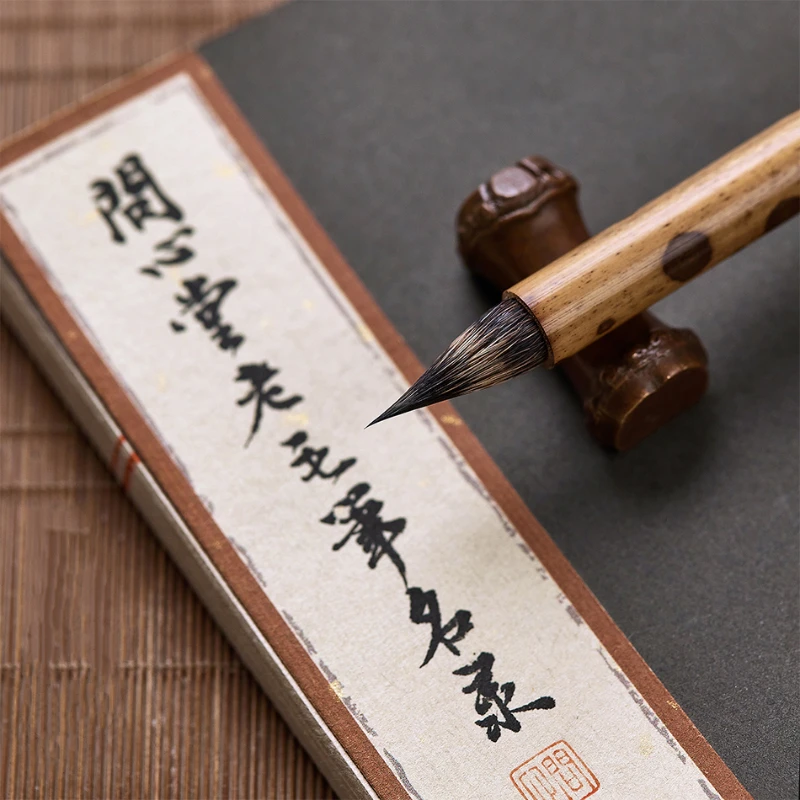 問心堂老毛筆名录